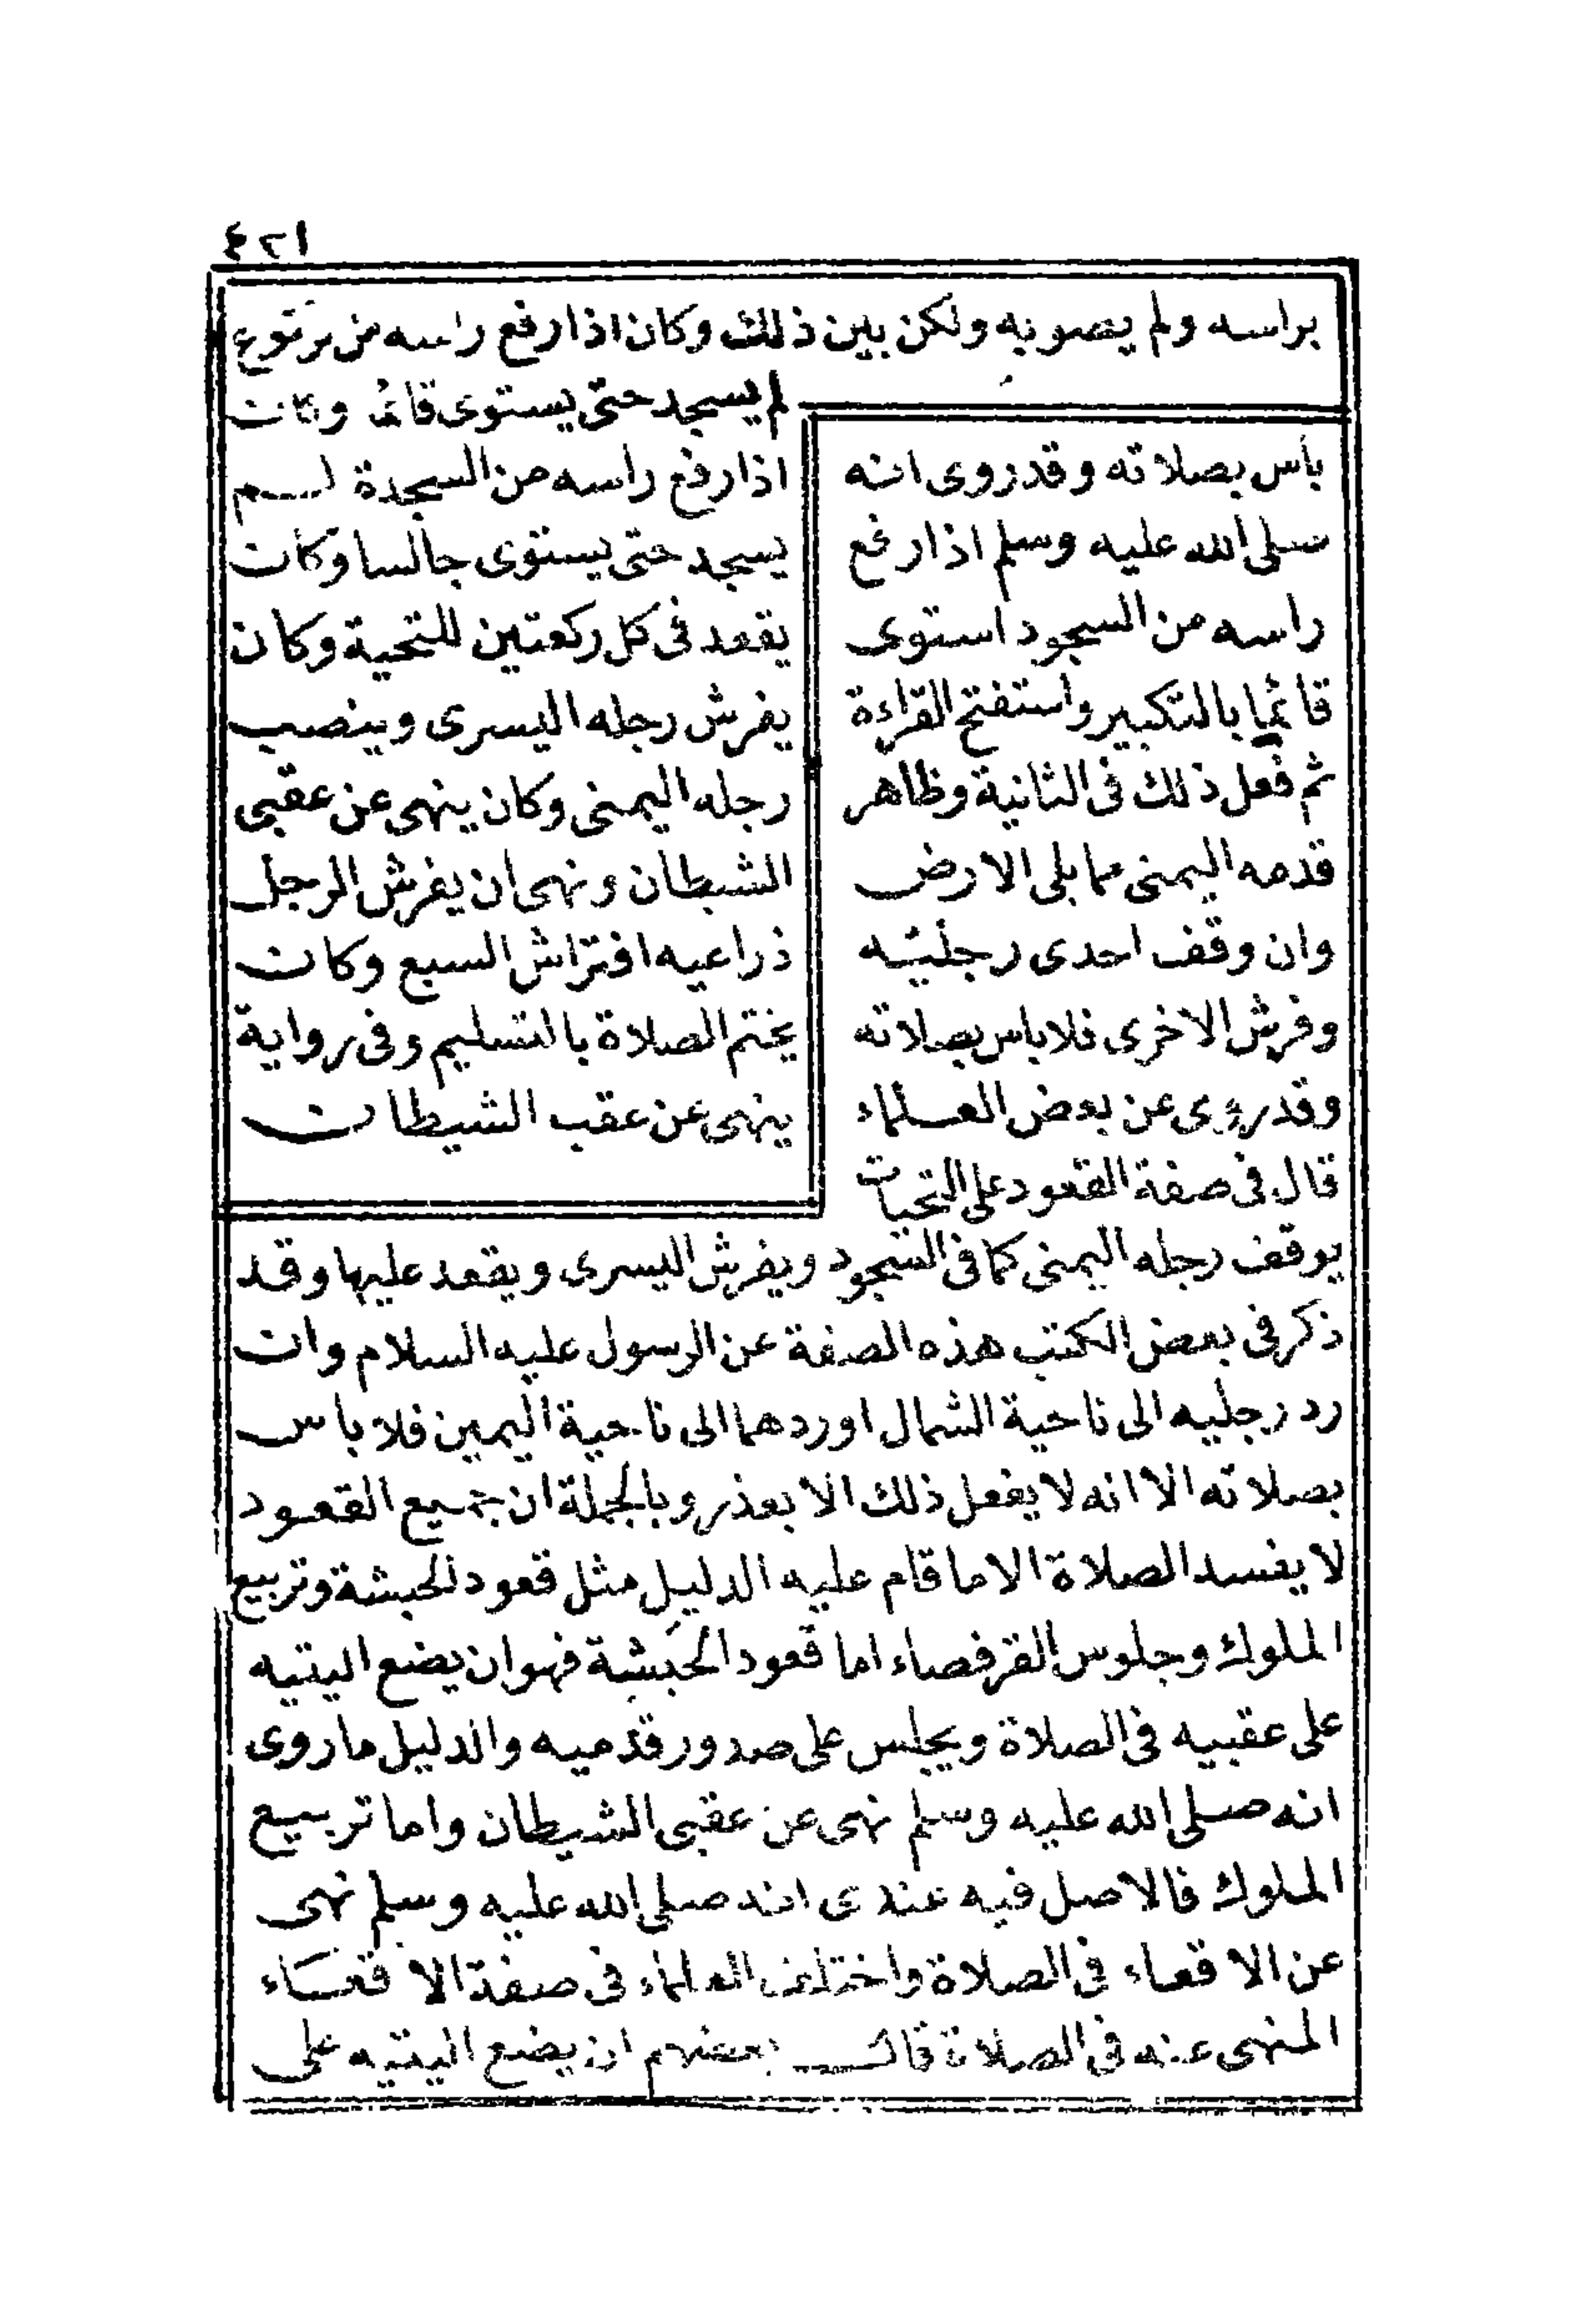 ٤٢١
براسه ولم يصوبه ولكن بين ذلك وكان اذا رفع راسه من ركوع
لم يسجد حتى يستوى قائما وكان
اذا رفع راسه من السجدة لم
يسجد حتى يستوى جالسا وكان
يقعد فى كل ركعتين للتحية وكان
يفرش رجله اليسرى وينصب
رجله اليمنى وكان ينهى عن عقبى
الشيطان ونهى ان يفرش الرجل
ذراعيه افتراش السبع وكان
يختم الصلاة بالتسليم وفى رواية
ينهى عن عقب الشيطان
باس بصلاته وقد روى انه
صلى الله عليه وسلم اذا رفع
راسه من السجود استوى
قائما بالتكبير واستفتح القراءة
ثم فعل ذلك فى الثانية وظاهر
قدمه اليمنى مما يلى الارض
وان وقف احدى رجليه
وفرش الاخرى فلا باس بصلاته
وقد روى عن بعض العلماء
قال فى صفة القعود على التحيات
يوقف رجله اليمنى كما فى السجود ويفرش اليسرى ويقعد عليها وقد
ذكر فى بعض الكتب هذه الصفة عن الرسول عليه السلام وان
رد رجليه الى ناحية الشمال او ردهما الى ناحية اليمين فلا باس
بصلاته الا انه لا يفعل ذلك الا بعذر وبالجملة ان جميع القعود
لا يفسد الصلاة الا ما قام عليه الدليل مثل قعود الحبشة وتربيع
الملوك وجلوس القرفصاء اما قعود الحبشة فهو ان يضع اليتيه
على عقبيه فى الصلاة ويجلس على صدور قدميه والدليل ما روى
انه صلى الله عليه وسلم نهى عن عقبى الشيطان واما تربيع
الملوك فالاصل فيه عندى انه صلى الله عليه وسلم نهى
عن الاقعاء فى الصلاة واختلف العلماء فى صفة الاقعاء
المنهى عنه فى الصلاة قال بعضهم ان يضع اليتيه على